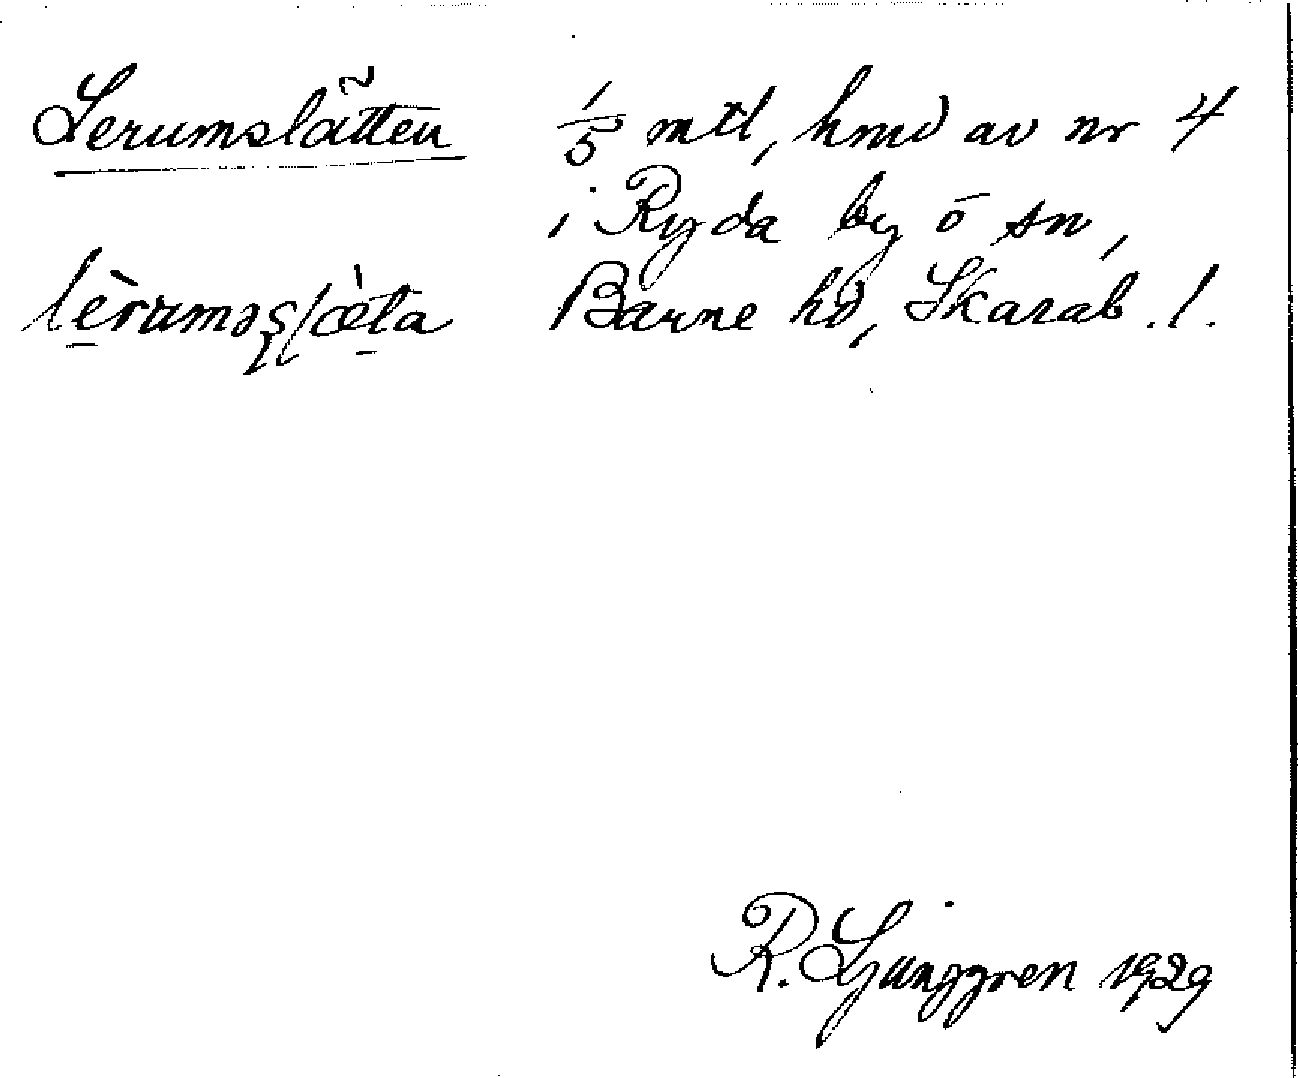 Lerumslätten 1/5 mtl, hmd av nr 4
i Ryda by o sn,
Barne hd, Skarab. l.
R. Ljunggren 1929